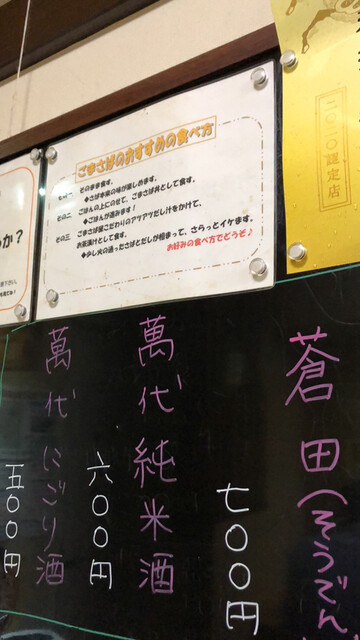 ごまさばのおすすめの食べ方
その一 そのまま食す。
◆さば本来の味が楽しめます。
その二 ごはんの上にのせて、ごまさば丼として食す。
◆ごはんが進みます!
その三 ごまさば屋こだわりのアツアツだし汁をかけて、
お茶漬けとして食す。
◆少し火の通ったさばとだしが相まって、さらっとイケます。
お好みの食べ方でどうぞ♪
うか?
二〇二〇認定店
蒼田(そうでん
七〇〇円
萬代 純米酒
六〇〇円
萬代 にごり酒
五〇〇円